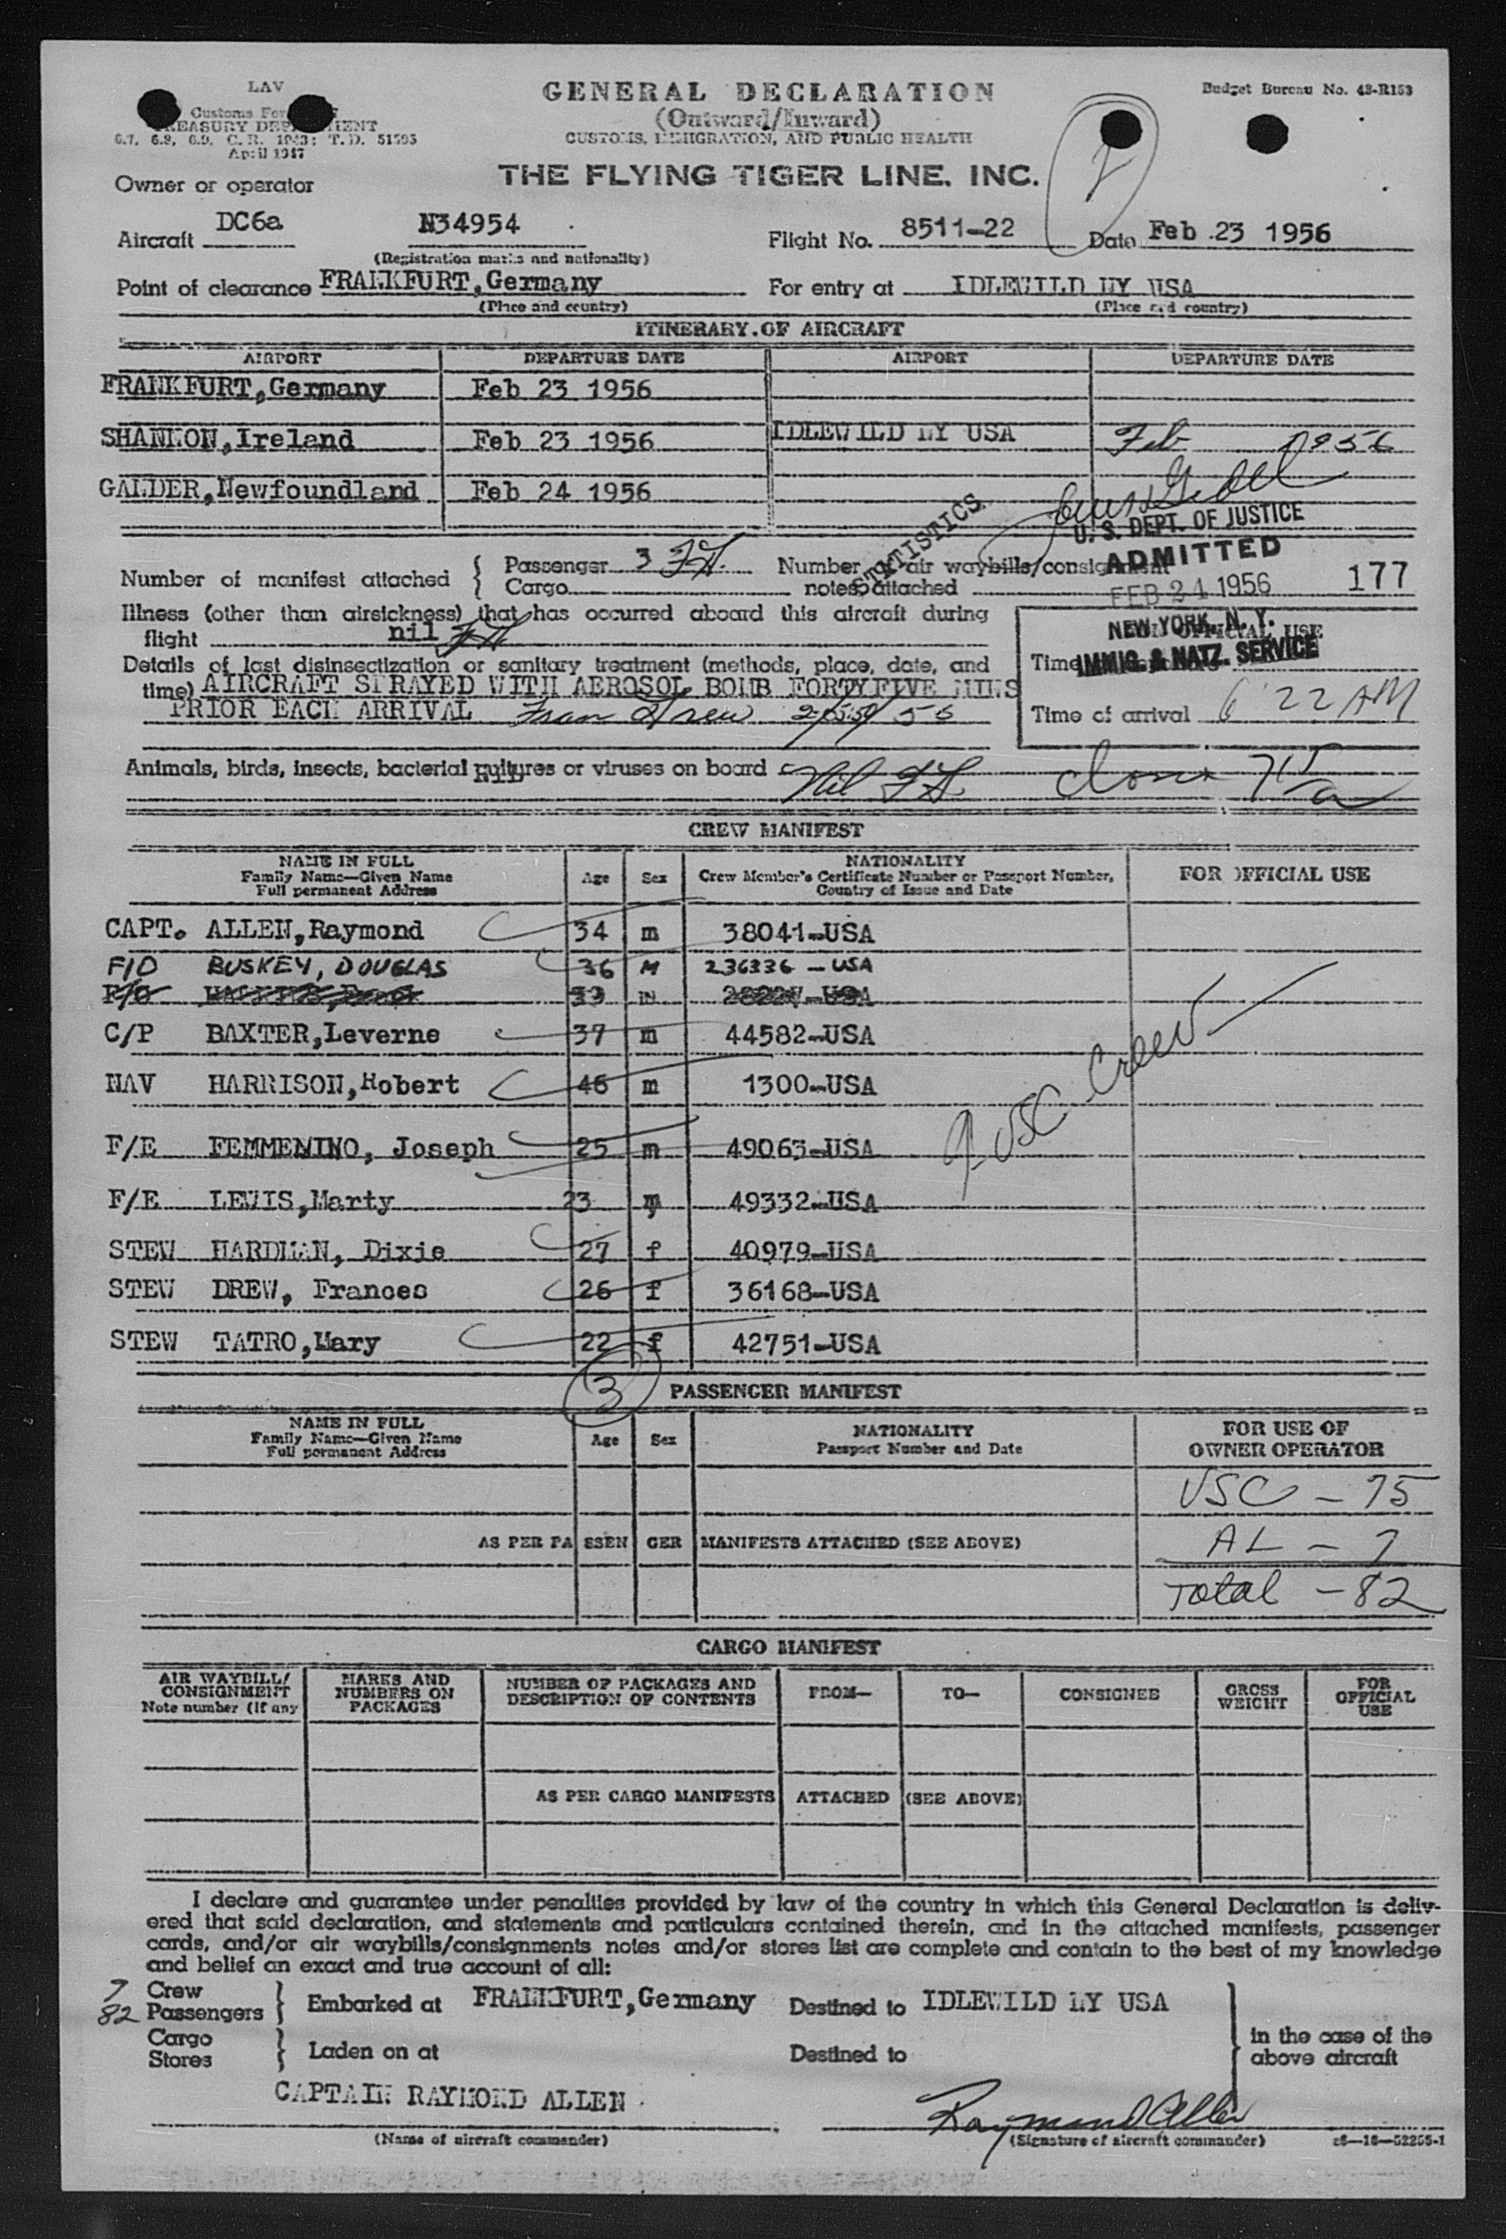 LAV
Customs Form
TREASURY DEPARTMENT
6.7, 6.8, 6.9, C. R. 1943: T. D. 51595
April 1947
GENERAL DECLARATION
(Outward/Inward)
CUSTOMS, IMMIGRATION, AND PUBLIC HEALTH
Budget Bureau No. 43-R153
THE FLYING TIGER LINE, INC.
Owner or operator
Aircraft DC6a N34954 Flight No. 8511-22 Date Feb 23 1956
(Registration marks and nationality)
Point of clearance FRANKFURT,Germany For entry at IDLEWILD NY USA
(Place and country) (Place and country)
ITINERARY OF AIRCRAFT
AIRPORT DEPARTURE DATE AIRPORT DEPARTURE DATE
FRANKFURT,Germany Feb 23 1956
SHANNON,Ireland Feb 23 1956 IDLEWILD NY USA Feb 1956
GANDER,Newfoundland Feb 24 1956
STATISTICS
U. S. DEPT. OF JUSTICE
ADMITTED
FEB 24 1956
NEW YORK, N. Y.
IMMIG. & NATZ. SERVICE
177
Number of manifest attached { Passenger 3 Number of air waybills/consignment
Cargo notes attached
Illness (other than airsickness) that has occurred aboard this aircraft during
flight nil
OFFICIAL USE
Details of last disinsectization or sanitary treatment (methods, place, date, and
time) AIRCRAFT SPRAYED WITH AEROSOL BOMB FORTYFIVE MINS
PRIOR EACH ARRIVAL Fran Drew
Time
Time of arrival 6 22 AM
Animals, birds, insects, bacterial cultures or viruses on board Nil
CREW MANIFEST
NAME IN FULL
Family Name—Given Name
Full permanent Address
Age Sex
NATIONALITY
Crew Member's Certificate Number or Passport Number,
Country of Issue and Date
FOR OFFICIAL USE
CAPT. ALLEN,Raymond 34 m 38041-USA
F/O BUSKEY, DOUGLAS 36 M 236336 - USA
C/P BAXTER,Leverne 37 m 44582-USA
NAV HARRISON,Robert 46 m 1300-USA
F/E FEMMENINO, Joseph 25 m 49063-USA
F/E LEWIS,Marty 23 m 49332-USA
STEW HARDMAN, Dixie 27 f 40979-USA
STEW DREW, Frances 26 f 36168-USA
STEW TATRO,Mary 22 f 42751-USA
9 USC Crew
3
PASSENGER MANIFEST
NAME IN FULL
Family Name—Given Name
Full permanent Address
Age Sex
NATIONALITY
Passport Number and Date
FOR USE OF
OWNER OPERATOR
USC - 75
AS PER PASSENGER MANIFESTS ATTACHED (SEE ABOVE) AL - 7
Total - 82
CARGO MANIFEST
AIR WAYBILL/
CONSIGNMENT
Note number (if any
MARKS AND
NUMBERS ON
PACKAGES
NUMBER OF PACKAGES AND
DESCRIPTION OF CONTENTS
FROM— TO— CONSIGNEE
GROSS
WEIGHT
FOR
OFFICIAL
USE
AS PER CARGO MANIFESTS ATTACHED (SEE ABOVE)
I declare and guarantee under penalties provided by law of the country in which this General Declaration is deliv-
ered that said declaration, and statements and particulars contained therein, and in the attached manifests, passenger
cards, and/or air waybills/consignments notes and/or stores list are complete and contain to the best of my knowledge
and belief an exact and true account of all:
7 Crew
82 Passengers } Embarked at FRANKFURT,Germany Destined to IDLEWILD NY USA
Cargo
Stores } Laden on at Destined to
in the case of the
above aircraft
CAPTAIN RAYMOND ALLEN Raymond Allen
(Name of aircraft commander) (Signature of aircraft commander) 16—52255-1